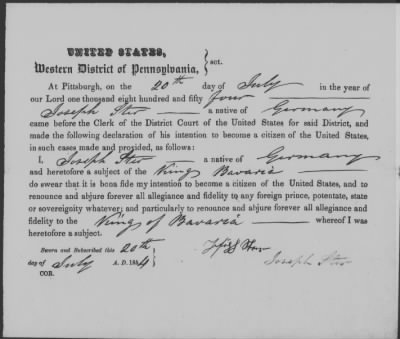 UNITED STATES,
Western District of Pennsylvania, } sct.
At Pittsburgh, on the 20th day of July in the year of
our Lord one thousand eight hundred and fifty four
Joseph Ster a native of Germany
came before the Clerk of the District Court of the United States for said District, and
made the following declaration of his intention to become a citizen of the United States,
in such cases made and provided, as follows:
I, Joseph Ster a native of Germany
and heretofore a subject of the King Bavaria
do swear that it is bona fide my intention to become a citizen of the United States, and to
renounce and abjure forever all allegiance and fidelity to any foreign prince, potentate, state
or sovereignity whatever; and particularly to renounce and abjure forever all allegiance and
fidelity to the King of Bavaria whereof I was
heretofore a subject.
Sworn and Subscribed this 20th
day of July A. D. 1854
COR.
Joseph Ster